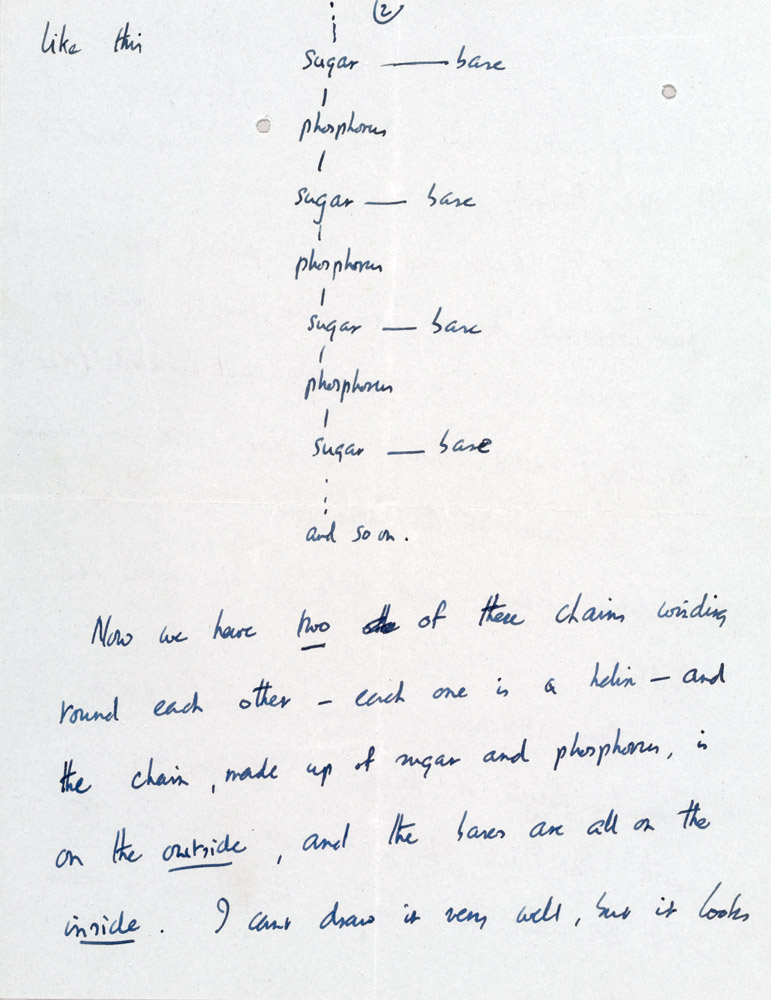 2
like this
sugar — base
phosphorus
sugar — base
phosphorus
sugar — base
phosphorus
sugar — base
and so on.
Now we have two of these chains winding
round each other – each one is a helix – and
the chain, made up of sugar and phosphorus, is
on the outside, and the bases are all on the
inside. I can't draw it very well, but it looks